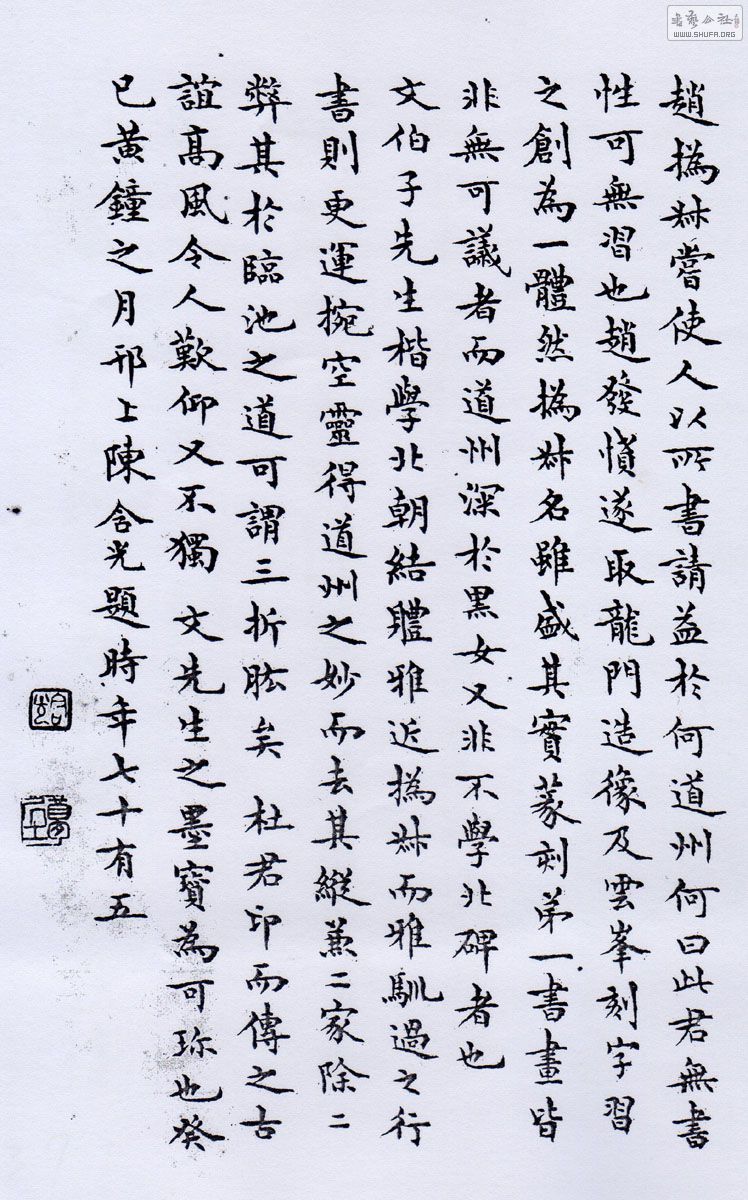 趙撝叔嘗使人以所書請益於何道州何曰此君無書
性可無習也趙發憤遂取龍門造像及雲峯刻字習
之創為一體然撝叔名雖盛其實篆刻第一書畫皆
非無可議者而道州深於黒女又非不學北碑者也
文伯子先生楷學北朝結體雅近撝叔而雅馴過之行
書則更運捥空靈得道州之妙而去其縱兼二家除二
弊其於臨池之道可謂三折肱矣 杜君印而傳之古
誼髙風令人歎仰又不獨 文先生之墨寶為可珎也癸
巳黃鐘之月邗上陳含光題時年七十有五
書藝公社
WWW.SHUFA.ORG